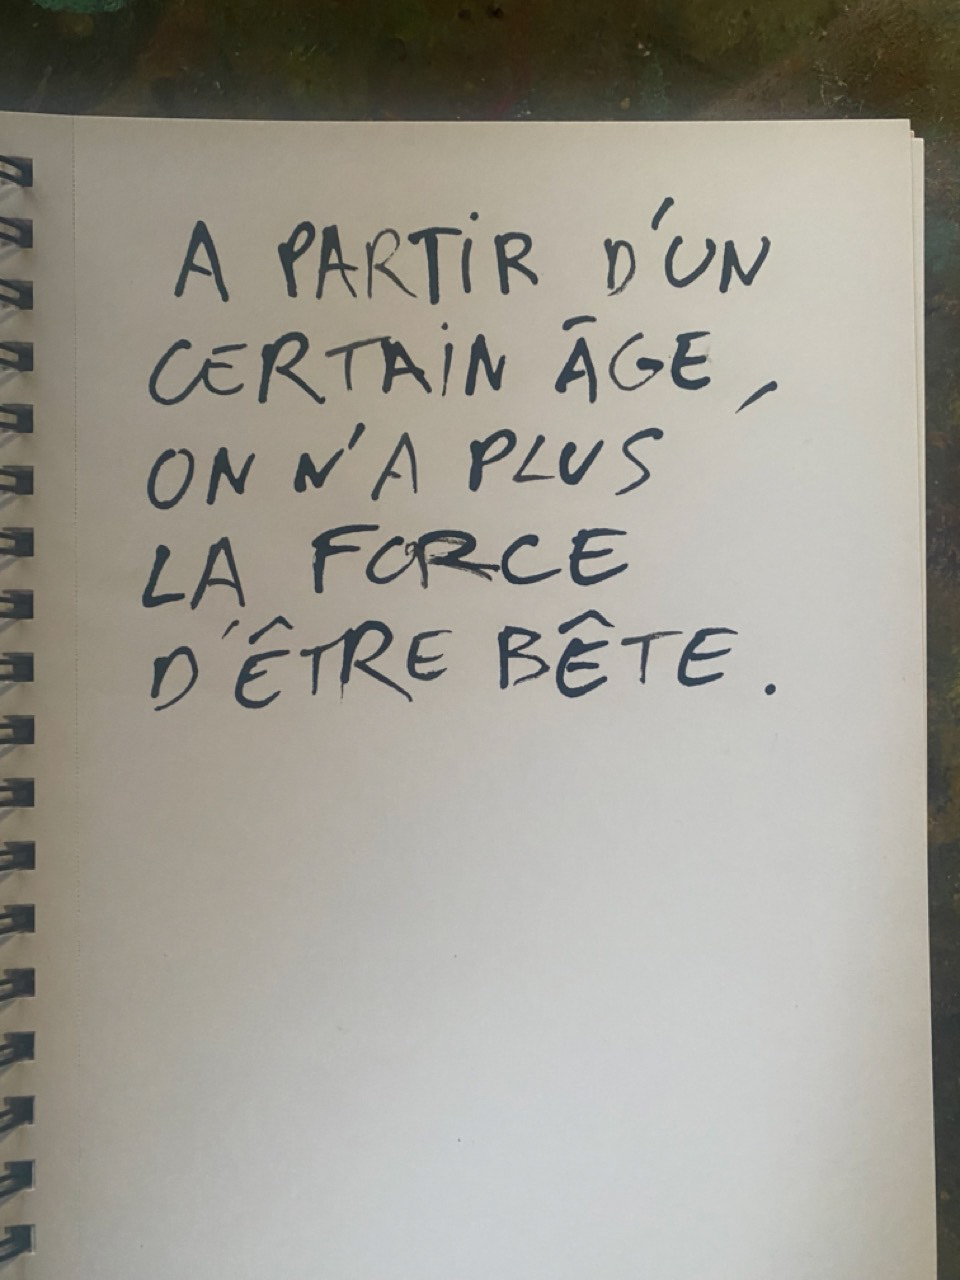 A PARTIR D'UN
CERTAIN ÂGE,
ON N'A PLUS
LA FORCE
D'ÊTRE BÊTE.